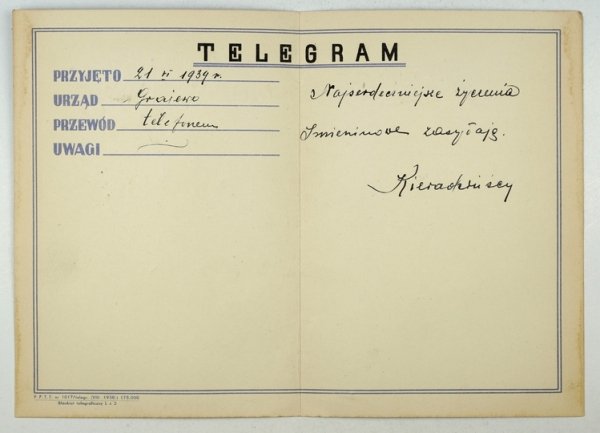 TELEGRAM
PRZYJĘTO 21 VI 1939 r.
URZĄD Grajewo
PRZEWÓD telefonem
UWAGI
Najserdeczniejsze życzenia
Imieninowe zasyłają.
Kieradzińscy